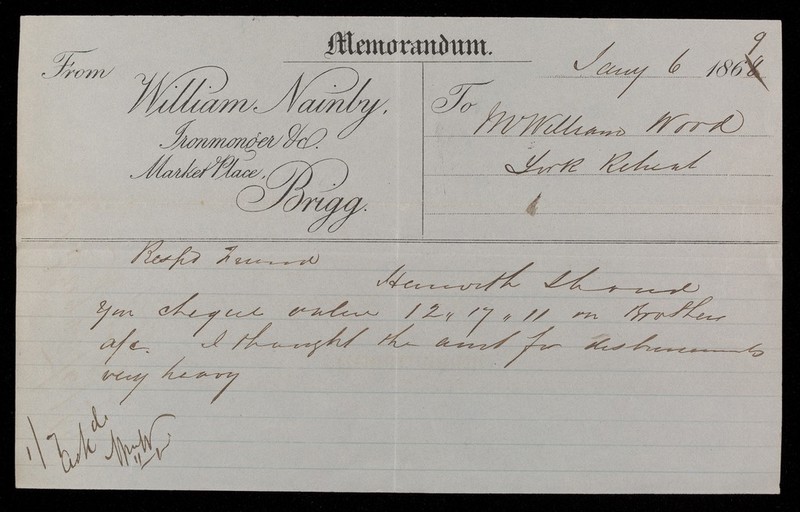 Memorandum.
From
William Nainby,
Ironmonger &c.
Market Place,
Brigg.
Jany 6 1869
To
Mr William Wood
York Retreat
Respd Friend
Herewith I hand
your cheque value 12,, 17,, 11 on Brothers
a/c. I thought the amt for disbursements
very heavy
1/7
Ackd